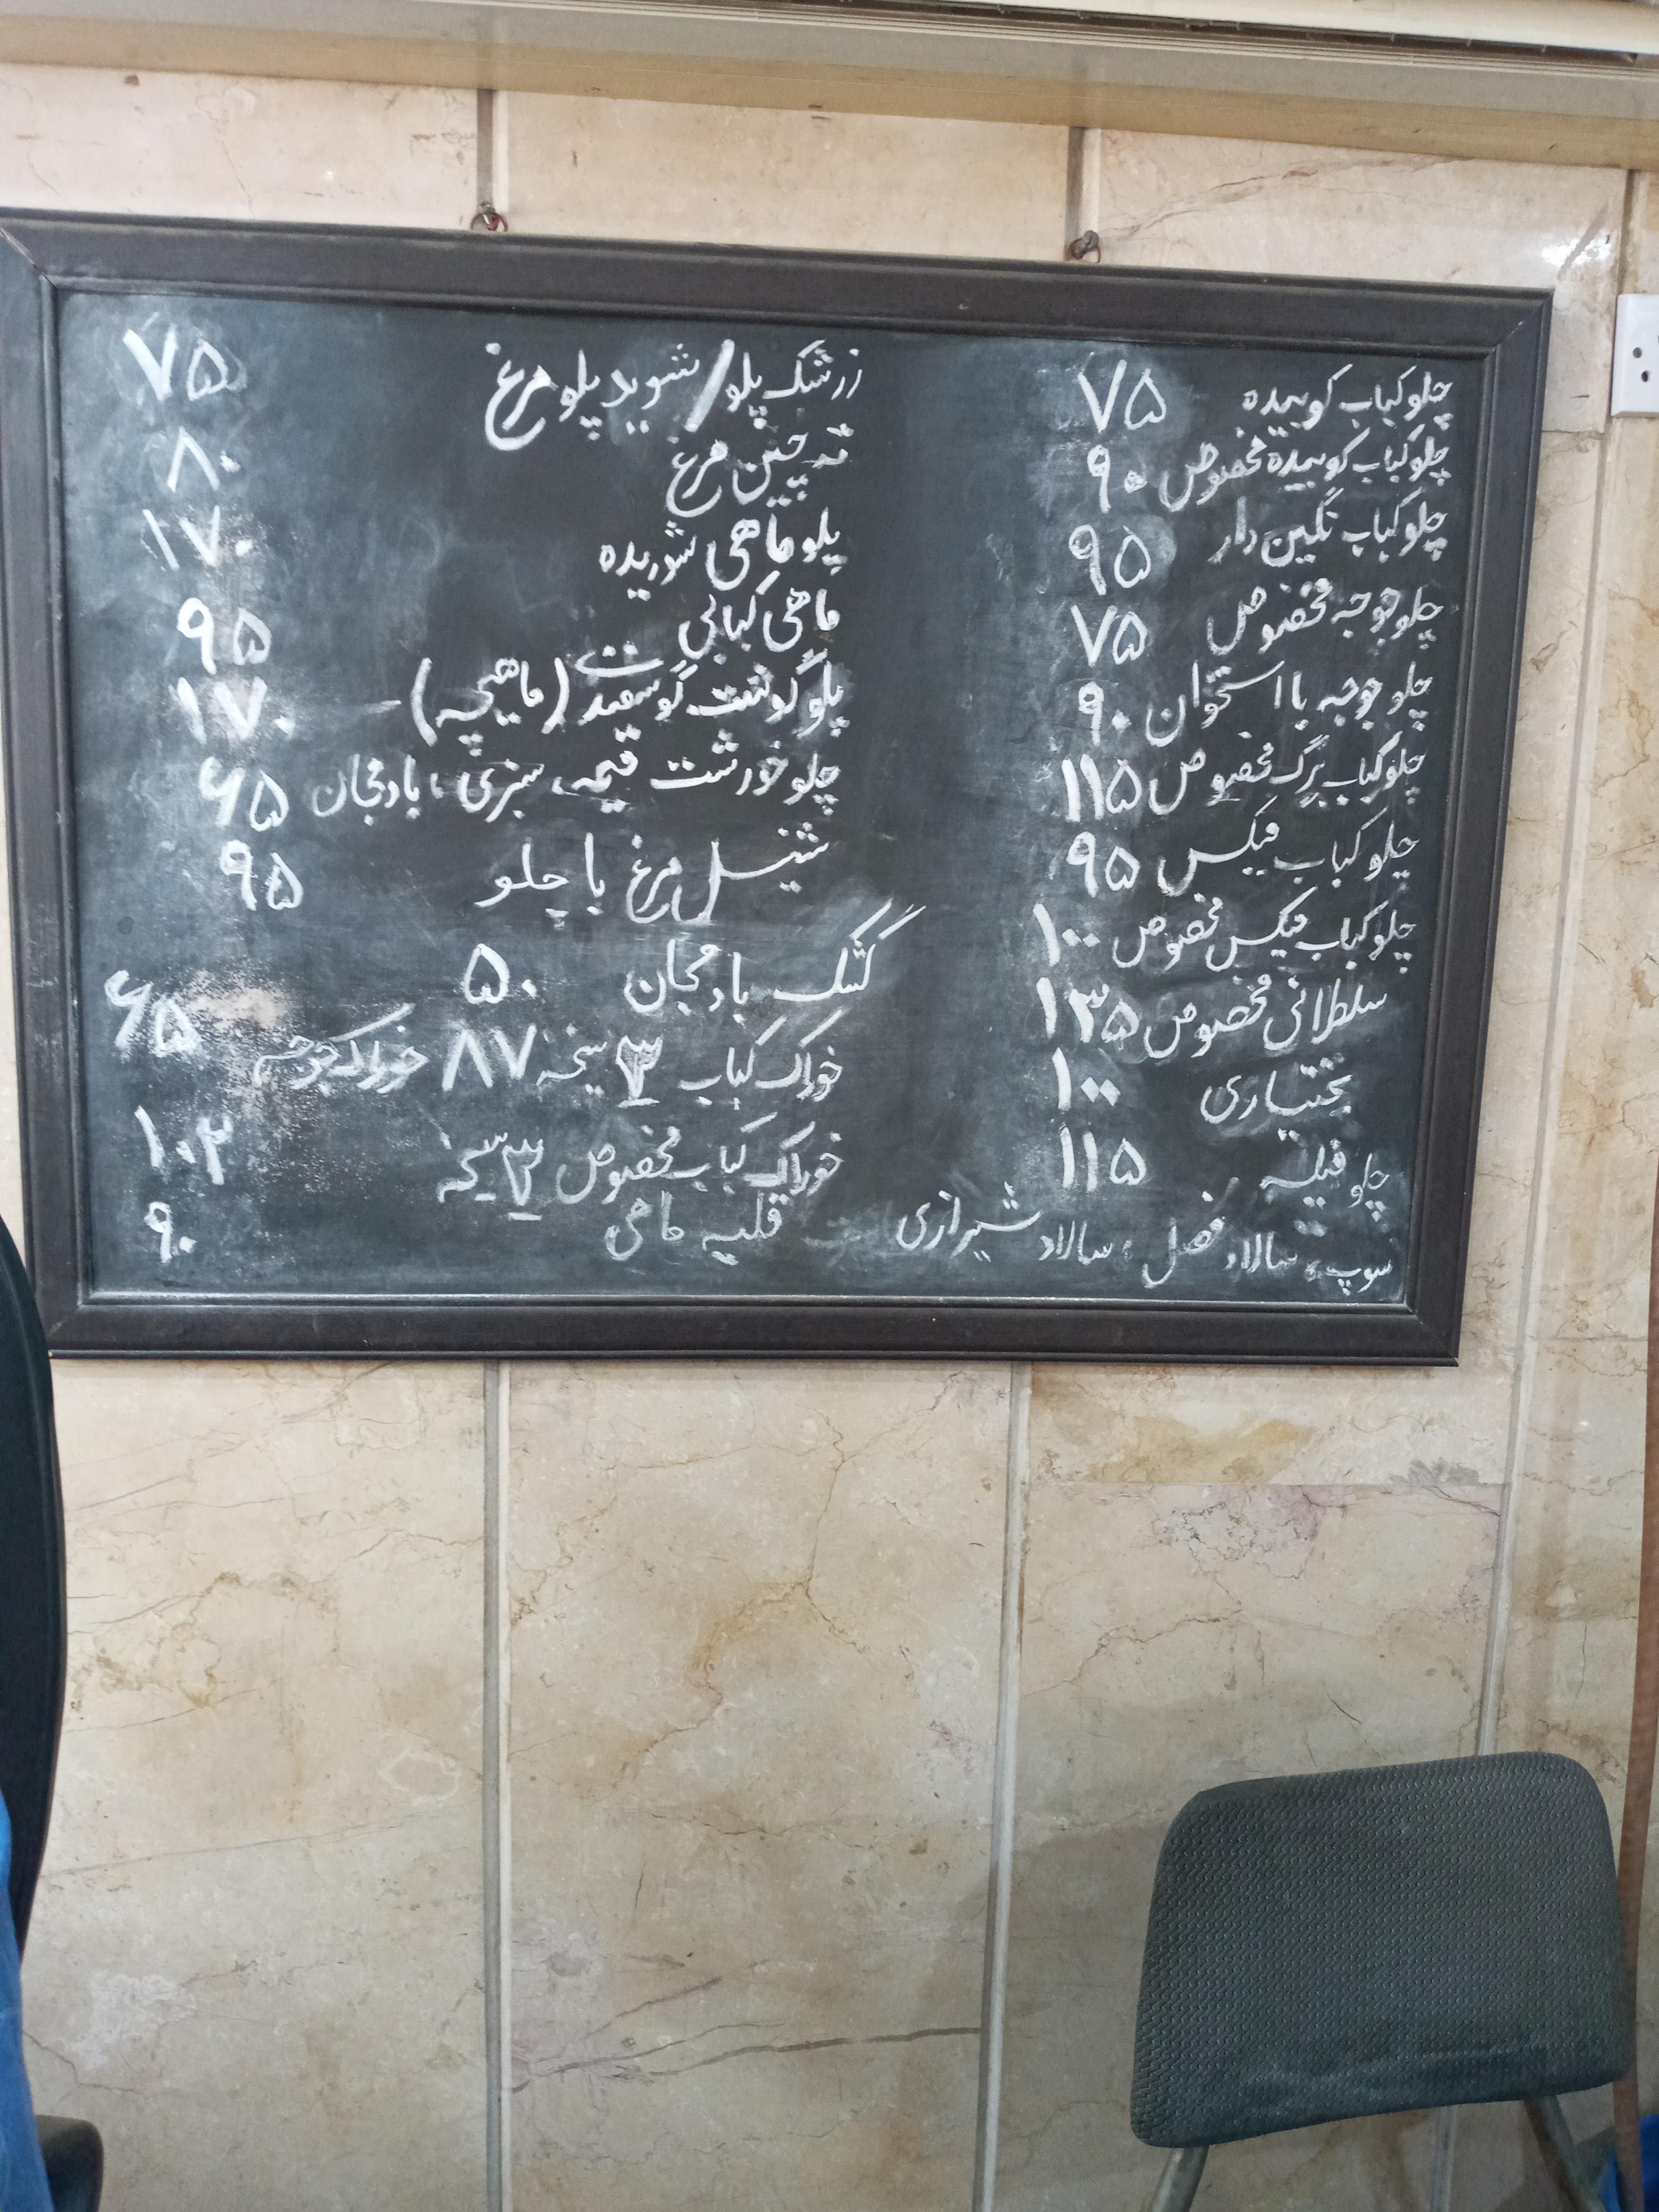 چلوکباب کوبیده ۷۵
چلوکباب کوبیده مخصوص ۹۰
چلوکباب نگین دار ۹۵
چلو جوجه مخصوص ۷۵
چلو جوجه با استخوان ۹۰
چلوکباب برگ مخصوص ۱۱۵
چلو کباب میکس ۹۵
چلوکباب میکس مخصوص ۱۰۰
سلطانی مخصوص ۱۳۵
بختیاری ۱۰۰
چلو فیله ۱۱۵
سوپ، سالاد فصل، سالاد شیرازی
زرشک پلو/شوید پلو مرغ ۷۵
ته چین مرغ ۸۰
پلو ماهی شوریده ۱۷۰
ماهی کبابی ۹۵
پلو گوشت گوسفندی (ماهیچه) ۱۷۰
چلو خورشت قیمه، سبزی، بادمجان ۶۵
شنیسل مرغ با چلو ۹۵
کشک بادمجان ۵۰
خوراک کباب ۳ سیخه ۸۷ خوراک جوجه ۶۵
خوراک کباب مخصوص ۳ سیخه ۱۰۲
قلیه ماهی ۹۰